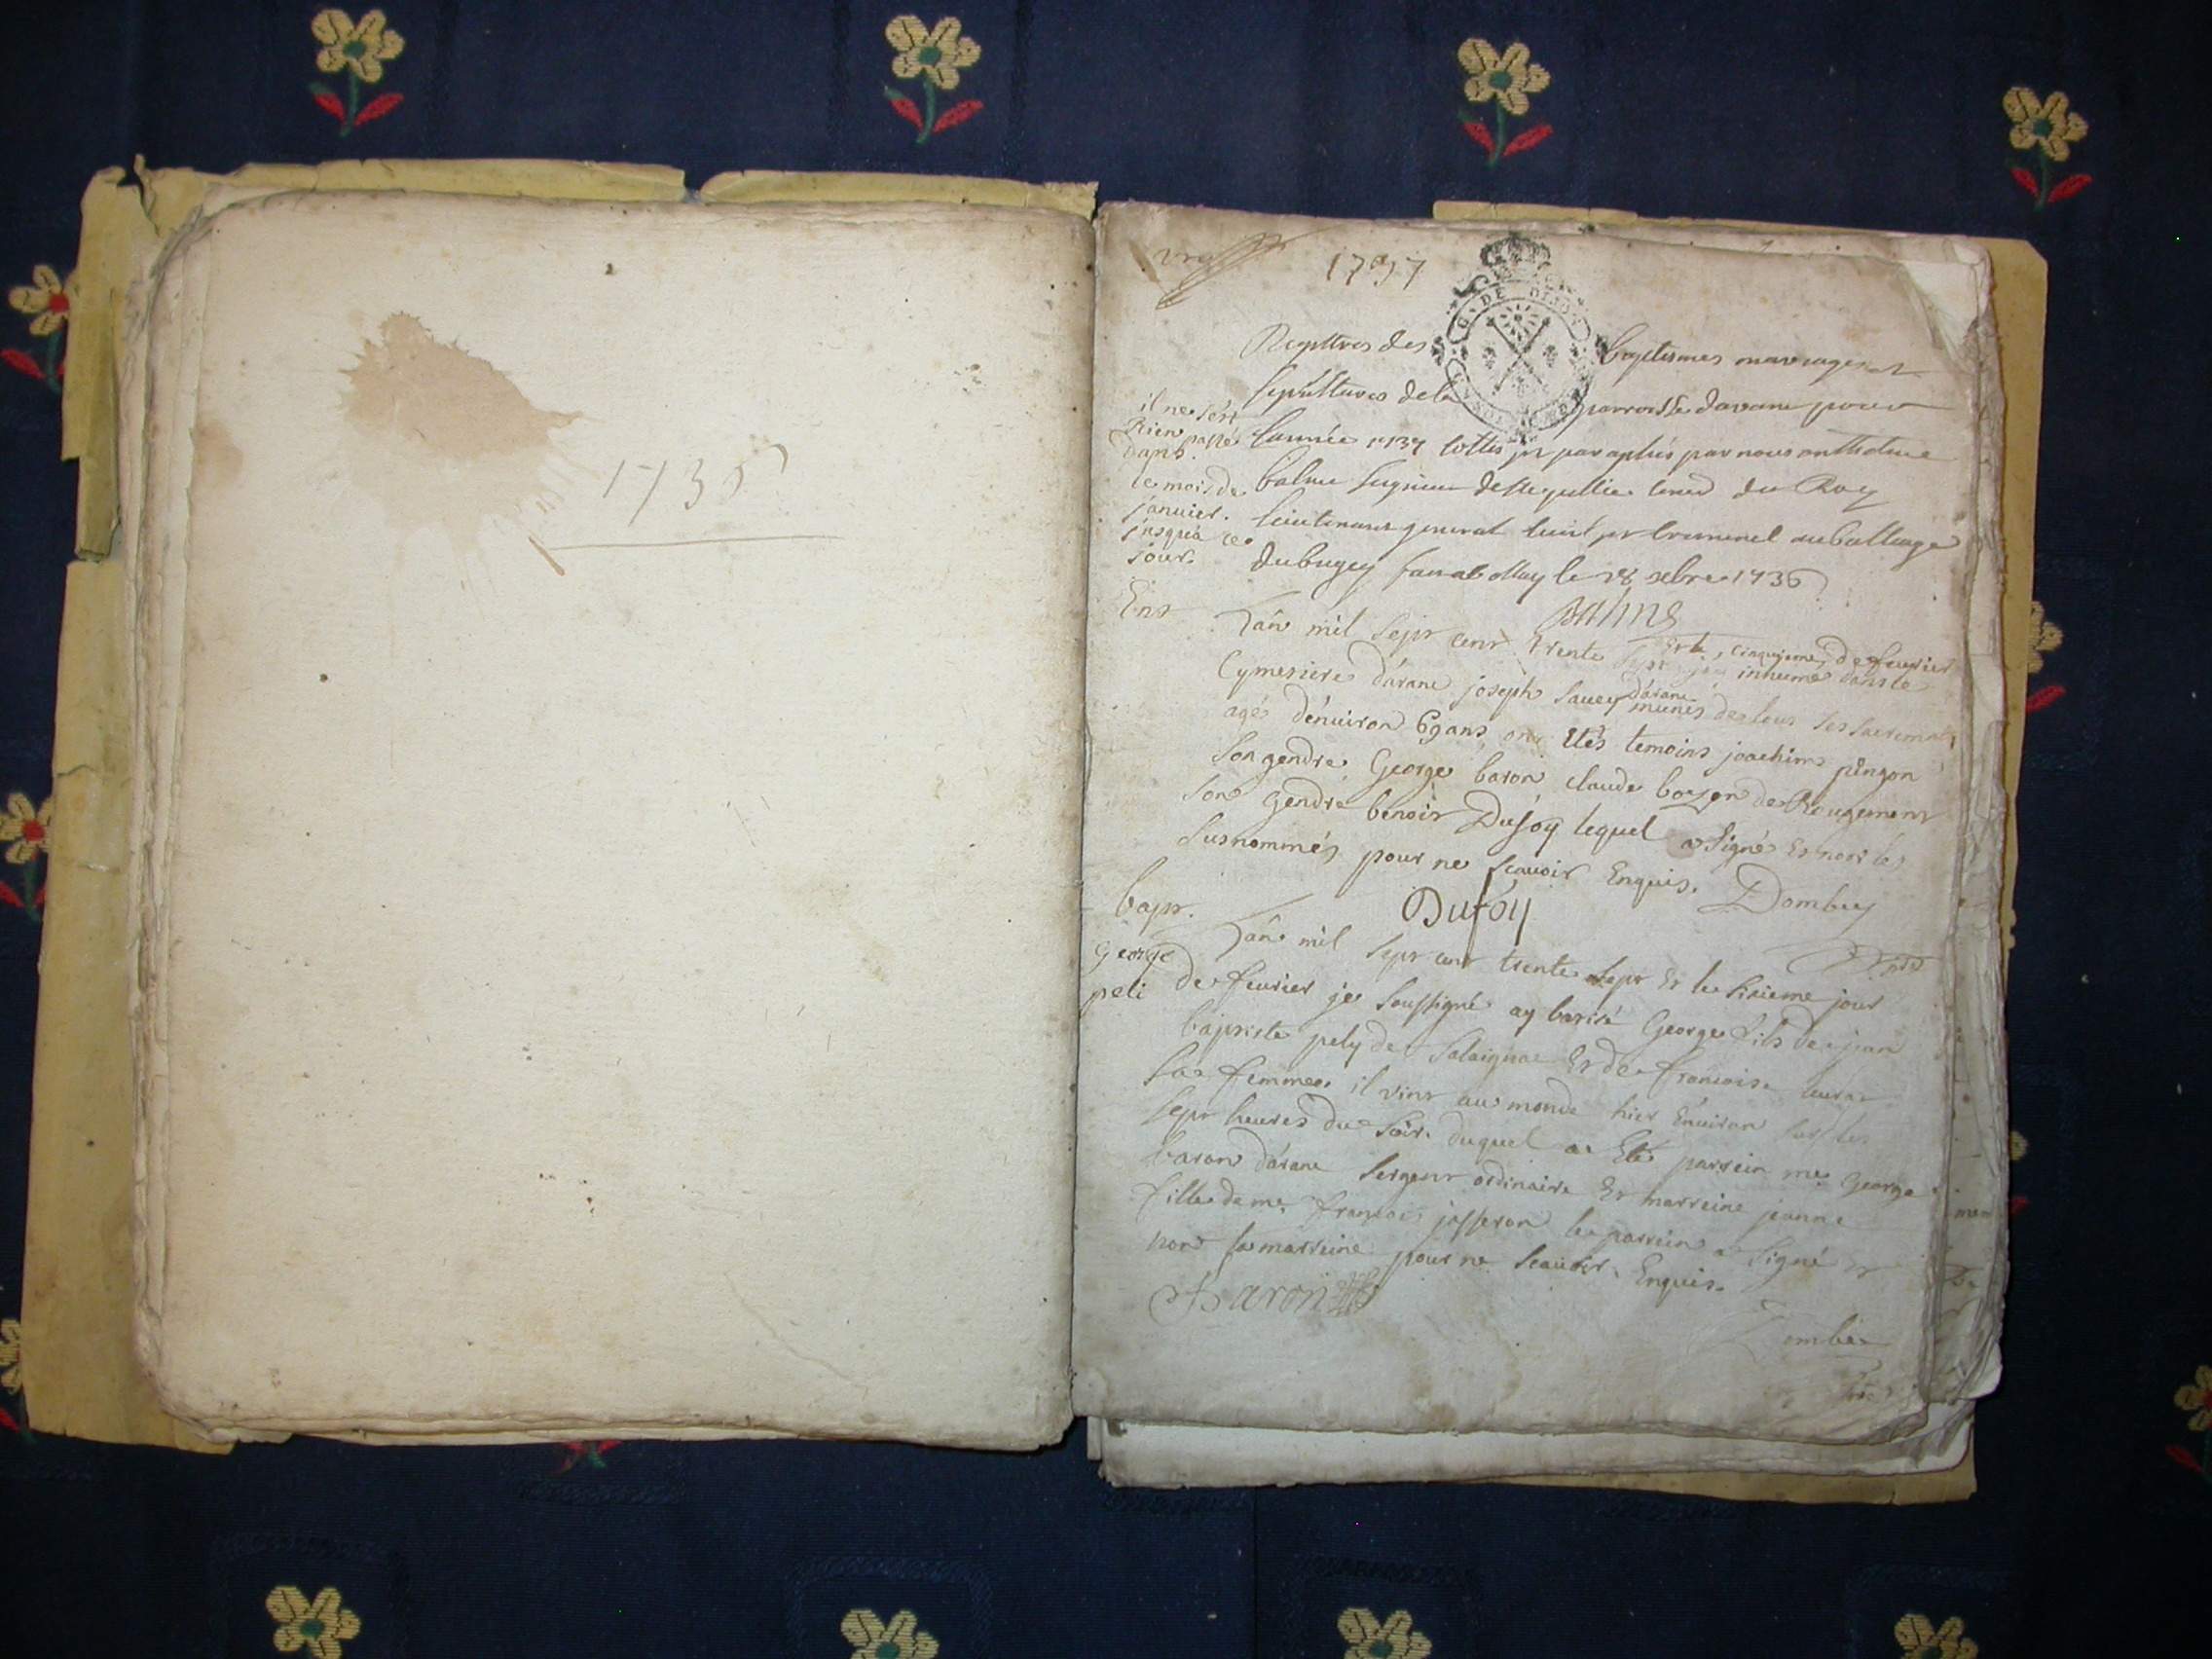 1735
1737
G. DE DIJON
Registres des baptismes mariages et
sepultures de la parroisse darane pour
lannée 1737 cottés et paraphés par nous anthelme
balme seigneur de
lieutenant general civil et criminel au balliage
du bugey fait a le 28 xbre 1736
Balme
il ne s'est
Rien passé
dans
le mois de
janvier
jusqua ce
jour.
Ent
L'an mil sept cent trente sept et le cinquieme de feuvrier
inhumé dans le
Cymetiere d'arane joseph savey d'arane munis de tous ses sacrements
agé d'enuiron 69 ans ont étés temoins joachim pinzon
son gendre George baron claude bozon de Rougemont
son gendre benoit Dufoy lequel a signé Et non les
susnommés pour ne scauoir Enquis. Dombey
Dufoy
bapt.
George
peli
L'an mil sept cent trente sept Et le sixieme jour
de feurier je soussigné ay batisé George fils de jean
baptiste pely de Et de francoise
sa femme. il vint au monde hier Enuiron sur les
sept heures du soir. duquel a Eté parrein me George
baron d'arane sergent ordinaire Et marreine jeanne
fille de me francois josseron le parrein a signé et
non la marreine pour ne scauoir. Enquis.
Baron
Dombey